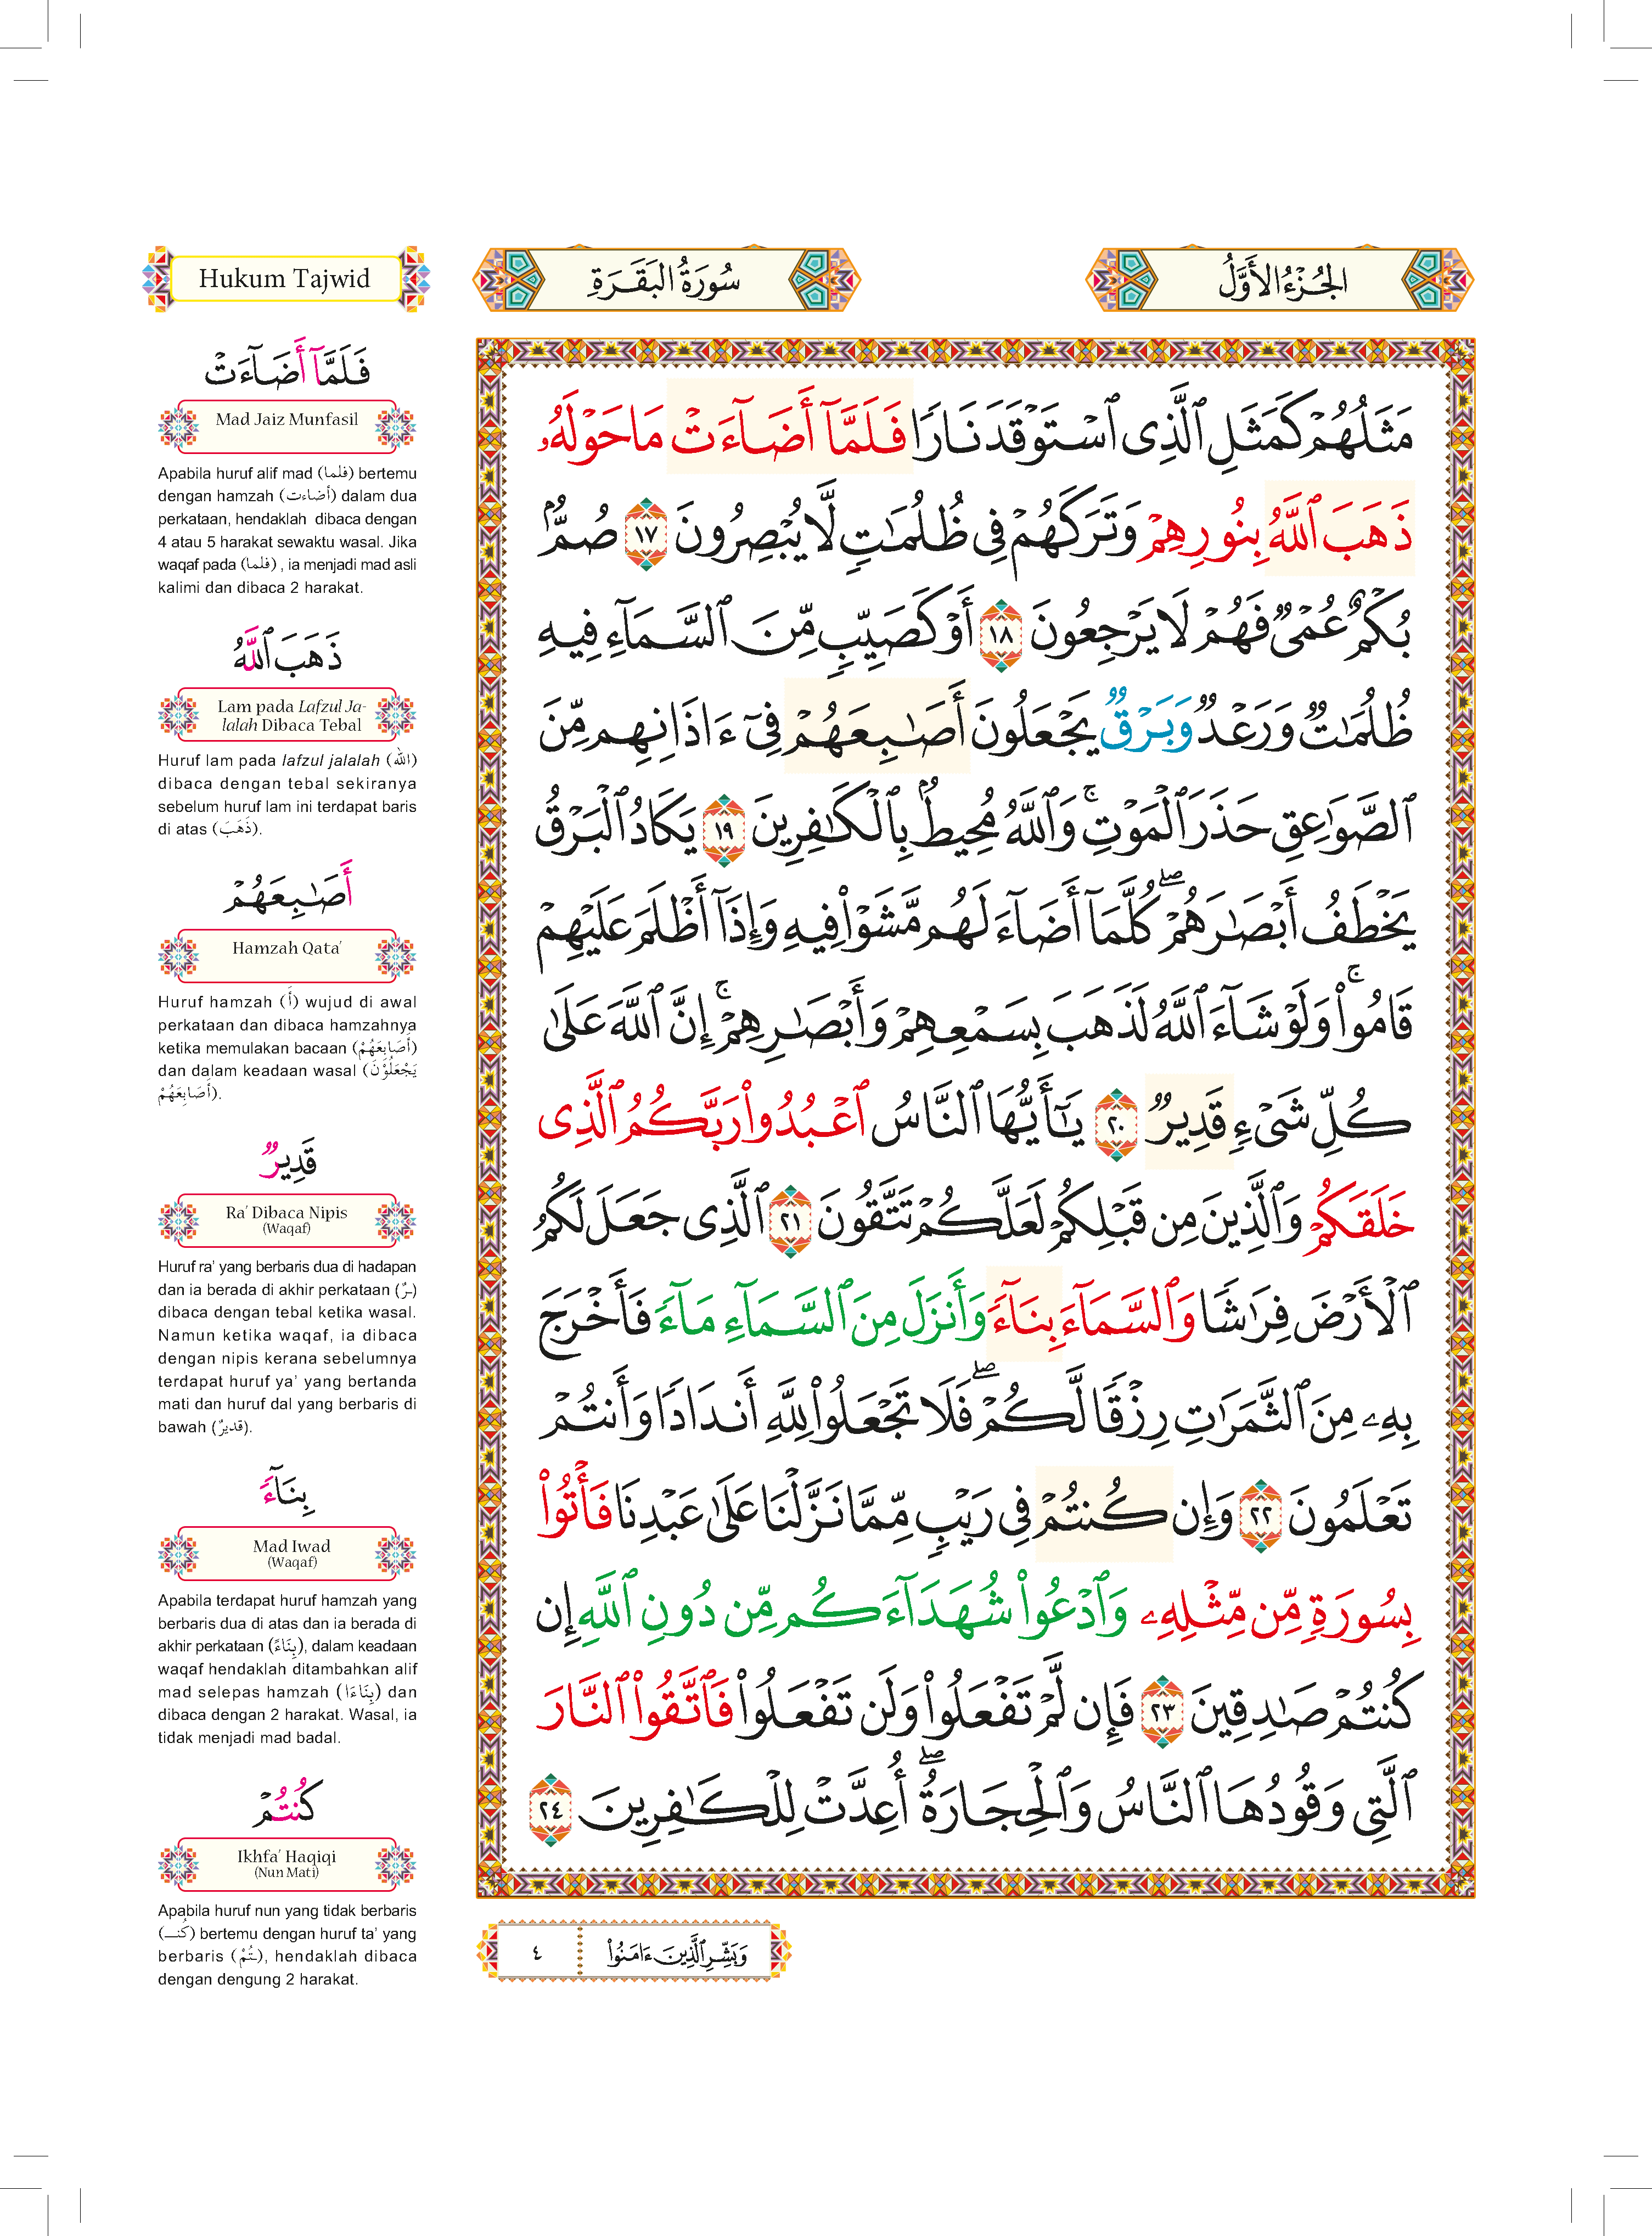 Hukum Tajwid
سُورَةُ البَقَرَةِ
الجُزْءُ الأَوَّلُ
فَلَمَّآ أَضَآءَتْ
Mad Jaiz Munfasil
Apabila huruf alif mad (فلما) bertemu
dengan hamzah (أضاءت) dalam dua
perkataan, hendaklah dibaca dengan
4 atau 5 harakat sewaktu wasal. Jika
waqaf pada (فلما) , ia menjadi mad asli
kalimi dan dibaca 2 harakat.
ذَهَبَ ٱللَّهُ
Lam pada Lafzul Ja-
lalah Dibaca Tebal
Huruf lam pada lafzul jalalah (الله)
dibaca dengan tebal sekiranya
sebelum huruf lam ini terdapat baris
di atas (ذَهَبَ).
أَصَـٰبِعَهُمْ
Hamzah Qata’
Huruf hamzah (أَ) wujud di awal
perkataan dan dibaca hamzahnya
ketika memulakan bacaan (أَصَابِعَهُمْ)
dan dalam keadaan wasal (يَجْعَلُوْنَ
أَصَابِعَهُمْ).
قَدِيرٌ
Ra’ Dibaca Nipis
(Waqaf)
Huruf ra’ yang berbaris dua di hadapan
dan ia berada di akhir perkataan (ـرٌ)
dibaca dengan tebal ketika wasal.
Namun ketika waqaf, ia dibaca
dengan nipis kerana sebelumnya
terdapat huruf ya’ yang bertanda
mati dan huruf dal yang berbaris di
bawah (قديرٌ).
بِنَآءً
Mad Iwad
(Waqaf)
Apabila terdapat huruf hamzah yang
berbaris dua di atas dan ia berada di
akhir perkataan (بِنَاءً), dalam keadaan
waqaf hendaklah ditambahkan alif
mad selepas hamzah (بِنَاءَا) dan
dibaca dengan 2 harakat. Wasal, ia
tidak menjadi mad badal.
كُنتُمْ
Ikhfa’ Haqiqi
(Nun Mati)
Apabila huruf nun yang tidak berbaris
(كُنـ) bertemu dengan huruf ta’ yang
berbaris (ـتُمْ), hendaklah dibaca
dengan dengung 2 harakat.
مَثَلُهُمْ كَمَثَلِ ٱلَّذِى ٱسْتَوْقَدَ نَارًا فَلَمَّآ أَضَآءَتْ مَا حَوْلَهُۥ
ذَهَبَ ٱللَّهُ بِنُورِهِمْ وَتَرَكَهُمْ فِى ظُلُمَـٰتٍ لَّا يُبْصِرُونَ ١٧ صُمٌّۢ
بُكْمٌ عُمْىٌ فَهُمْ لَا يَرْجِعُونَ ١٨ أَوْ كَصَيِّبٍ مِّنَ ٱلسَّمَآءِ فِيهِ
ظُلُمَـٰتٌ وَرَعْدٌ وَبَرْقٌ يَجْعَلُونَ أَصَـٰبِعَهُمْ فِىٓ ءَاذَانِهِم مِّنَ
ٱلصَّوَٰعِقِ حَذَرَ ٱلْمَوْتِ ۚ وَٱللَّهُ مُحِيطٌۢ بِٱلْكَـٰفِرِينَ ١٩ يَكَادُ ٱلْبَرْقُ
يَخْطَفُ أَبْصَـٰرَهُمْ ۖ كُلَّمَآ أَضَآءَ لَهُم مَّشَوْا۟ فِيهِ وَإِذَآ أَظْلَمَ عَلَيْهِمْ
قَامُوا۟ ۚ وَلَوْ شَآءَ ٱللَّهُ لَذَهَبَ بِسَمْعِهِمْ وَأَبْصَـٰرِهِمْ ۚ إِنَّ ٱللَّهَ عَلَىٰ
كُلِّ شَىْءٍ قَدِيرٌ ٢٠ يَـٰٓأَيُّهَا ٱلنَّاسُ ٱعْبُدُوا۟ رَبَّكُمُ ٱلَّذِى
خَلَقَكُمْ وَٱلَّذِينَ مِن قَبْلِكُمْ لَعَلَّكُمْ تَتَّقُونَ ٢١ ٱلَّذِى جَعَلَ لَكُمُ
ٱلْأَرْضَ فِرَٰشًا وَٱلسَّمَآءَ بِنَآءً وَأَنزَلَ مِنَ ٱلسَّمَآءِ مَآءً فَأَخْرَجَ
بِهِۦ مِنَ ٱلثَّمَرَٰتِ رِزْقًا لَّكُمْ ۖ فَلَا تَجْعَلُوا۟ لِلَّهِ أَندَادًا وَأَنتُمْ
تَعْلَمُونَ ٢٢ وَإِن كُنتُمْ فِى رَيْبٍ مِّمَّا نَزَّلْنَا عَلَىٰ عَبْدِنَا فَأْتُوا۟
بِسُورَةٍ مِّن مِّثْلِهِۦ وَٱدْعُوا۟ شُهَدَآءَكُم مِّن دُونِ ٱللَّهِ إِن
كُنتُمْ صَـٰدِقِينَ ٢٣ فَإِن لَّمْ تَفْعَلُوا۟ وَلَن تَفْعَلُوا۟ فَٱتَّقُوا۟ ٱلنَّارَ
ٱلَّتِى وَقُودُهَا ٱلنَّاسُ وَٱلْحِجَارَةُ ۖ أُعِدَّتْ لِلْكَـٰفِرِينَ ٢٤
وَبَشِّرِ ٱلَّذِينَ ءَامَنُوا۟
٤